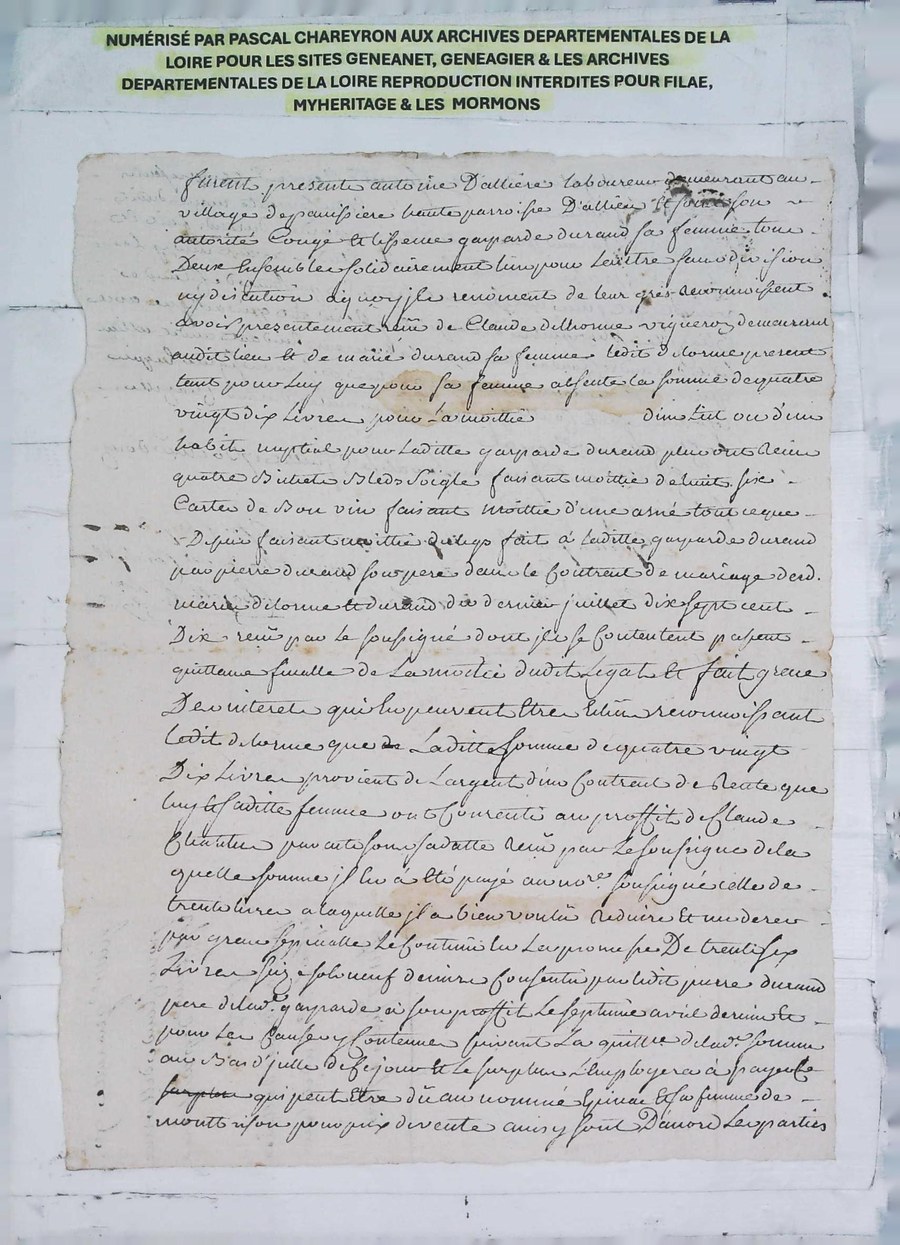 NUMÉRISÉ PAR PASCAL CHAREYRON AUX ARCHIVES DEPARTEMENTALES DE LA
LOIRE POUR LES SITES GENEANET, GENEAGIER & LES ARCHIVES
DEPARTEMENTALES DE LA LOIRE REPRODUCTION INTERDITES POUR FILAE,
MYHERITAGE & LES MORMONS
furent presents antoine Dalliere laboureur demeurant au
village de haute parroisse D'allieu Et son
autorité Congé et gasparde durand sa femme tous
Deux Ensemble solidairement lun pour Lautre sans division
ny discution de leur gré reconnoissent
avoir presentement reçu de Claude delhorme vigneron demeurent
audit lieu Et de marie durand sa femme ledit delorme present
tant pour Luy que pour sa femme absente la somme de quatre
vingt dix Livres pour La moittié ou d'un
habit nuptial pour Laditte gasparde durand plus ont Reçu
quatre Bichets Bled Seigle faisant moittié de huit six
Cartes de Bon vin faisant moittié d'une asné tout ce que
Dessus faisant moittié du legs fait à laditte gasparde durand
par pierre durand son pere dans le Contract de mariage desd.
marié delorme Et durand du dernier juillet dix sept cent
Dix reçu par Le soussigné dont ils se Contentent passent
quittance finalle de La moitié dudit Legat Et fait grace
Des interets qui luy peuvent Etre reconnoissant
ledit delorme que de Laditte somme de quatre vingt
Dix Livres provient de Largent d'un Contract de Rente que
luy Et saditte femme ont au proffit de Claude
par acte sous sadatte Reçu par Le soussigné de la
quelle somme il à Eté payé au no.re soussigné celle de
trente livres a laquelle il a bien voulu reduire Et moderer
par grace Le Contenu En La promesse De trente six
Livres seize sols neuf deniers Consentie par ledit pierre durand
pere de lad. gasparde à son proffit Le septieme avril dernier Et
pour Les Causes y Contenues suivant La quitt.ce de lad. somme
au Bas d'jcelle de Ce jour Et Le surplus L'employera à payer Ce
qui peut Etre dû au nommé Epinac Et sa femme de
montbrison pour prix de vente ainsy sont D'accord Les parties